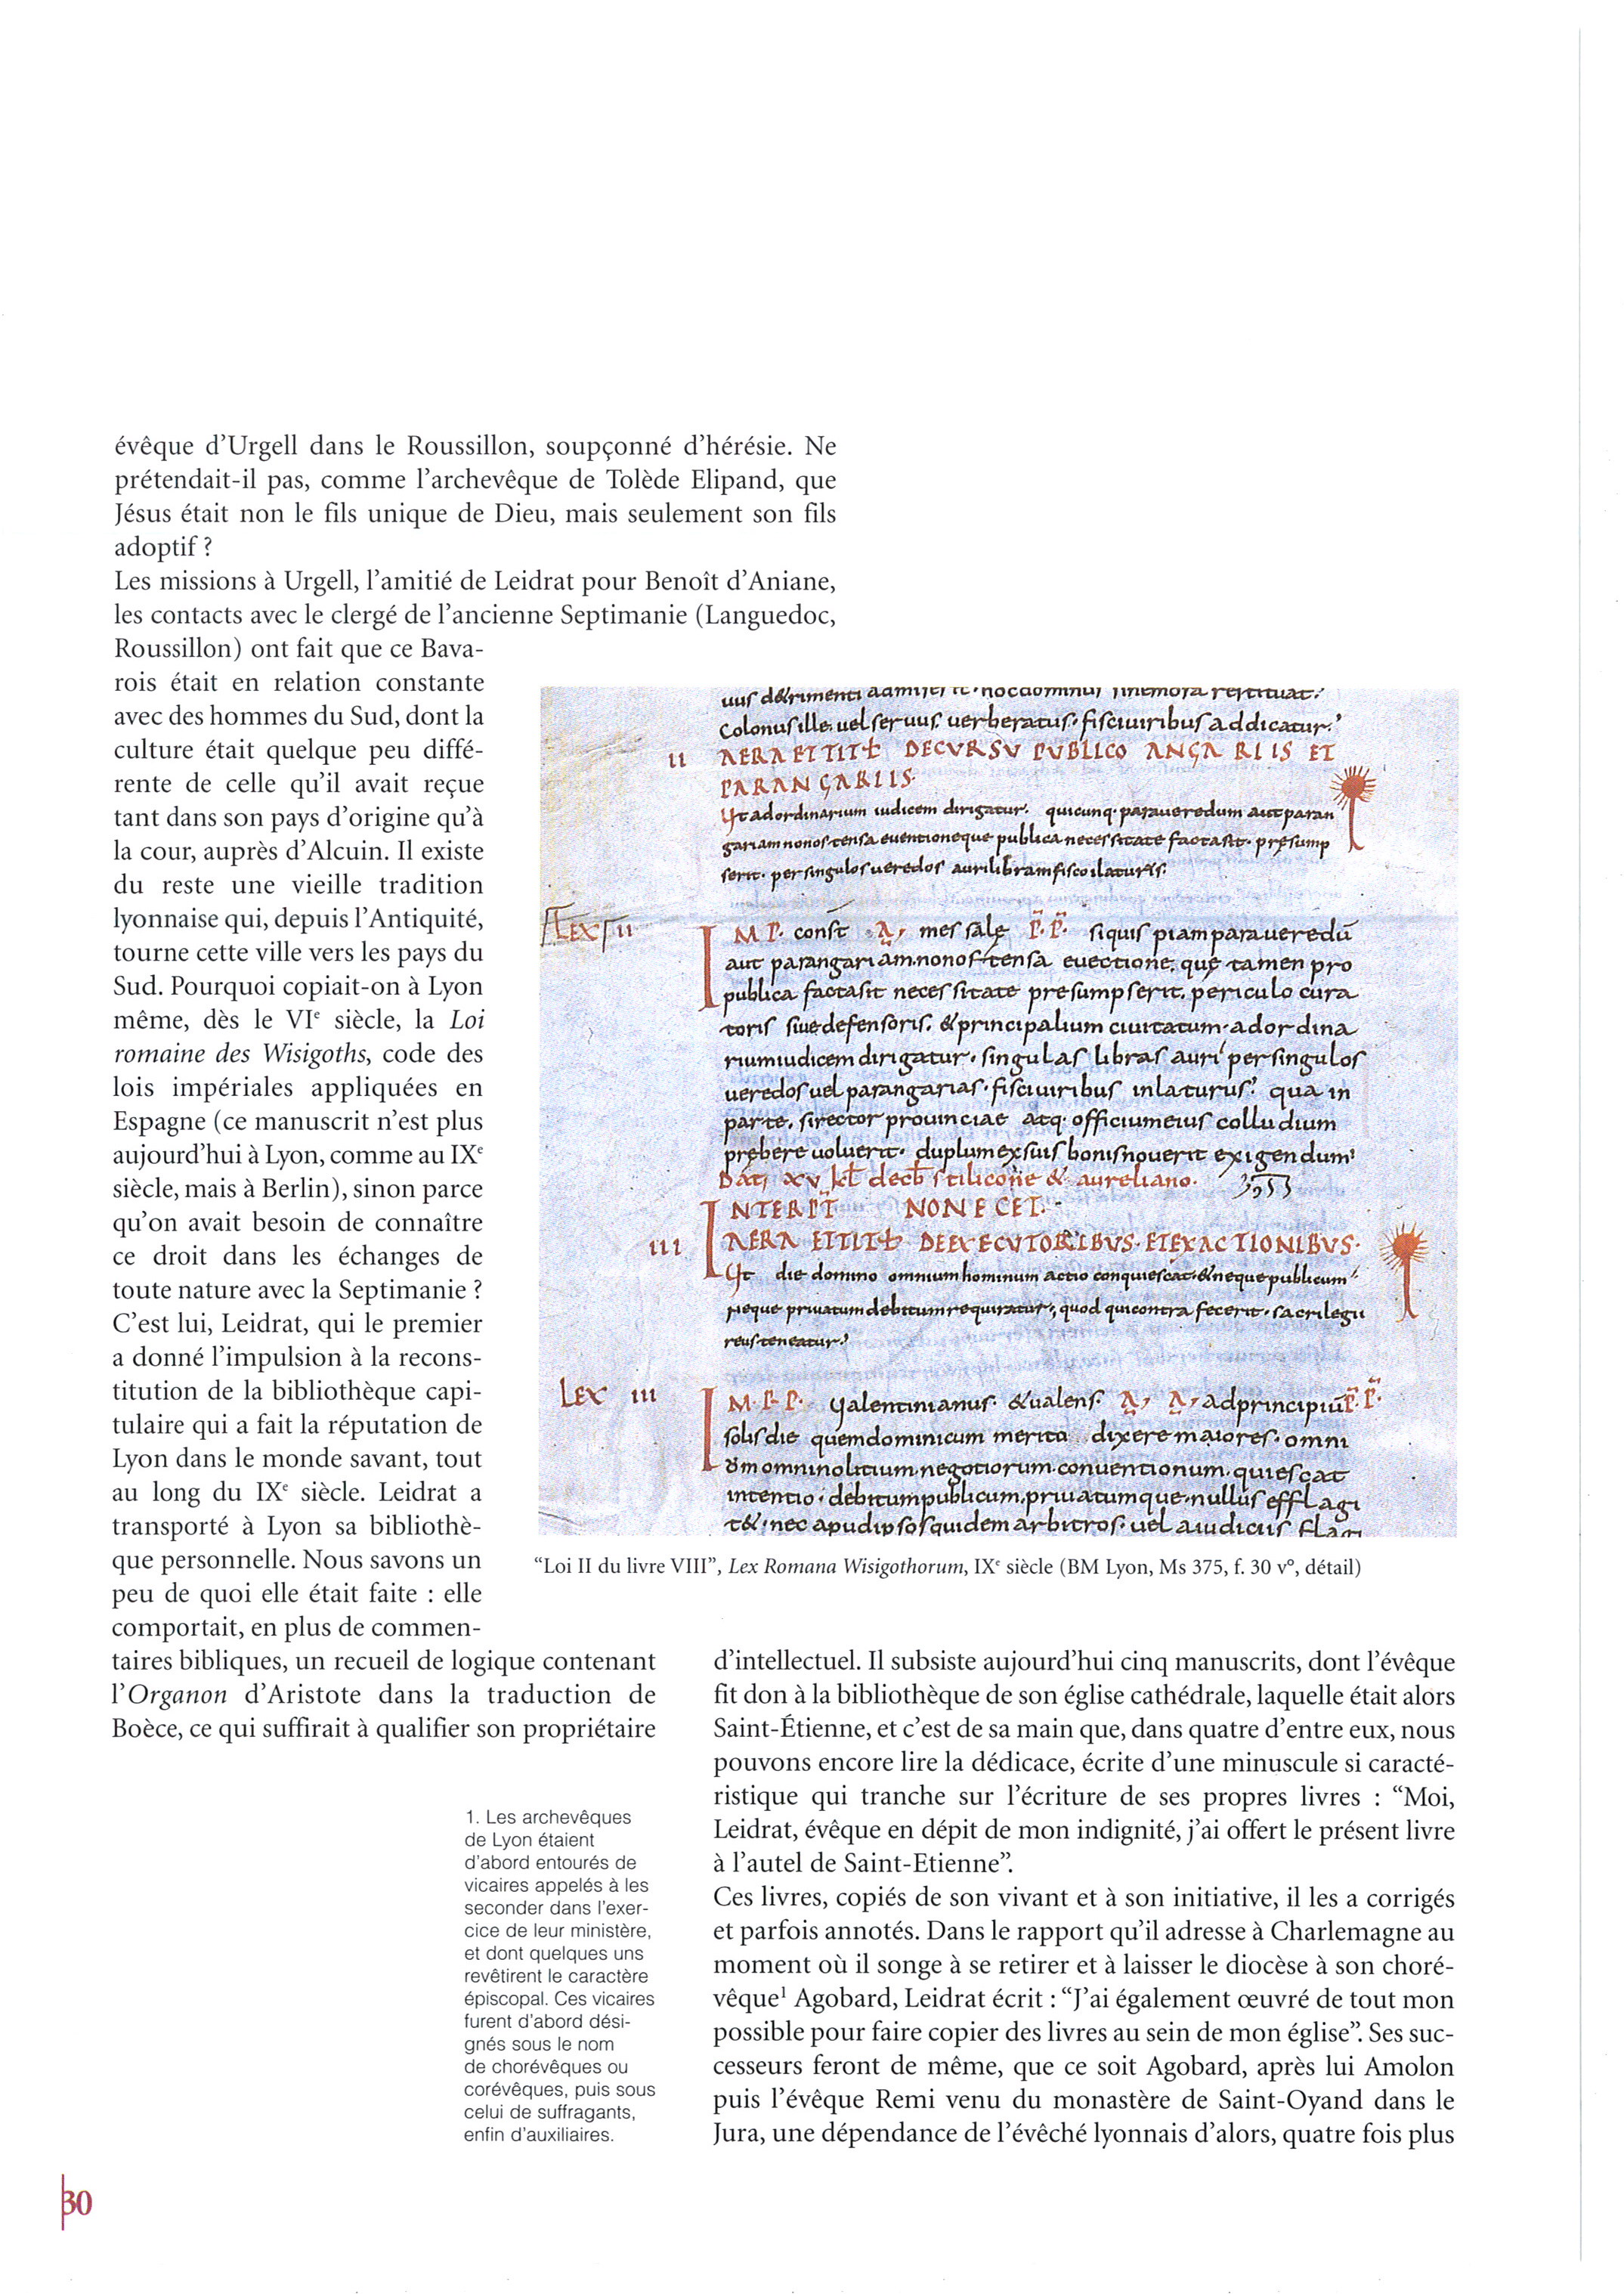 évêque d'Urgell dans le Roussillon, soupçonné d'hérésie. Ne
prétendait-il pas, comme l'archevêque de Tolède Elipand, que
Jésus était non le fils unique de Dieu, mais seulement son fils
adoptif ?
Les missions à Urgell, l'amitié de Leidrat pour Benoît d'Aniane,
les contacts avec le clergé de l'ancienne Septimanie (Languedoc,
Roussillon) ont fait que ce Bava-
rois était en relation constante
avec des hommes du Sud, dont la
culture était quelque peu diffé-
rente de celle qu'il avait reçue
tant dans son pays d'origine qu'à
la cour, auprès d'Alcuin. Il existe
du reste une vieille tradition
lyonnaise qui, depuis l'Antiquité,
tourne cette ville vers les pays du
Sud. Pourquoi copiait-on à Lyon
même, dès le VIe siècle, la Loi
romaine des Wisigoths, code des
lois impériales appliquées en
Espagne (ce manuscrit n'est plus
aujourd'hui à Lyon, comme au IXe
siècle, mais à Berlin), sinon parce
qu'on avait besoin de connaître
ce droit dans les échanges de
toute nature avec la Septimanie ?
C'est lui, Leidrat, qui le premier
a donné l'impulsion à la recons-
titution de la bibliothèque capi-
tulaire qui a fait la réputation de
Lyon dans le monde savant, tout
au long du IXe siècle. Leidrat a
transporté à Lyon sa bibliothè-
que personnelle. Nous savons un
peu de quoi elle était faite : elle
comportait, en plus de commen-
taires bibliques, un recueil de logique contenant
l'Organon d'Aristote dans la traduction de
Boèce, ce qui suffirait à qualifier son propriétaire
colonus ille uel seruus uerberatus fisci uiribus addicatur
II AERA ET TIT DE CURSU PUBLICO ANGARIIS ET
PARANGARIIS
Ut ad ordinarium iudicem dirigatur quicunq. paraueredum aut paran
gariam non ostensa euentioneque publica necessitate facta sit presump
serit per singulos ueredos auri libram fisco
LEX II IM P. const A, messale P.P. siquis piam paraueredū
aut parangariam non ostensa euectione, que tamen pro
publica facta sit necessitate presumpserit, periculo cura
toris siue defensoris, & principalium ciuitatum ad ordina
rium iudicem dirigatur, singulas libras auri per singulos
ueredos uel parangarias fisci uiribus inlaturus qua in
parte, si rector prouinciae atq. officium eius colludium
prebere uoluerit duplum ex suis bonis nouerit exigendum
Dat xv kl decb stilicone & aureliano.
INTERPT NON ECET.
III AERA ET TIT DE EXECUTORIBUS ET EXACTIONIBUS.
Ut die domino omnium hominum actio conquiescat & neque publicum
neque priuatum debitum requiratur, quod qui contra fecerit sacrilegii
reus teneatur
LEX III IM P. P. Ualentinianus & ualens A, A, ad principiū P. P.
solis die quem dominicum merito dixere maiores omni
om omnino litium negotiorum conuentionum quiescat
intentio debitum publicum priuatumque nullus efflagi
t& nec apud ipsos quidem arbitros uel a iudiciis flagi
“Loi II du livre VIII”, Lex Romana Wisigothorum, IXe siècle (BM Lyon, Ms 375, f. 30 v°, détail)
d'intellectuel. Il subsiste aujourd'hui cinq manuscrits, dont l'évêque
fit don à la bibliothèque de son église cathédrale, laquelle était alors
Saint-Étienne, et c'est de sa main que, dans quatre d'entre eux, nous
pouvons encore lire la dédicace, écrite d'une minuscule si caracté-
ristique qui tranche sur l'écriture de ses propres livres : “Moi,
Leidrat, évêque en dépit de mon indignité, j'ai offert le présent livre
à l'autel de Saint-Etienne”.
Ces livres, copiés de son vivant et à son initiative, il les a corrigés
et parfois annotés. Dans le rapport qu'il adresse à Charlemagne au
moment où il songe à se retirer et à laisser le diocèse à son choré-
vêque1 Agobard, Leidrat écrit : “J'ai également œuvré de tout mon
possible pour faire copier des livres au sein de mon église”. Ses suc-
cesseurs feront de même, que ce soit Agobard, après lui Amolon
puis l'évêque Remi venu du monastère de Saint-Oyand dans le
Jura, une dépendance de l'évêché lyonnais d'alors, quatre fois plus
1. Les archevêques
de Lyon étaient
d'abord entourés de
vicaires appelés à les
seconder dans l'exer-
cice de leur ministère,
et dont quelques uns
revêtirent le caractère
épiscopal. Ces vicaires
furent d'abord dési-
gnés sous le nom
de chorévêques ou
corévêques, puis sous
celui de suffragants,
enfin d'auxiliaires.
30